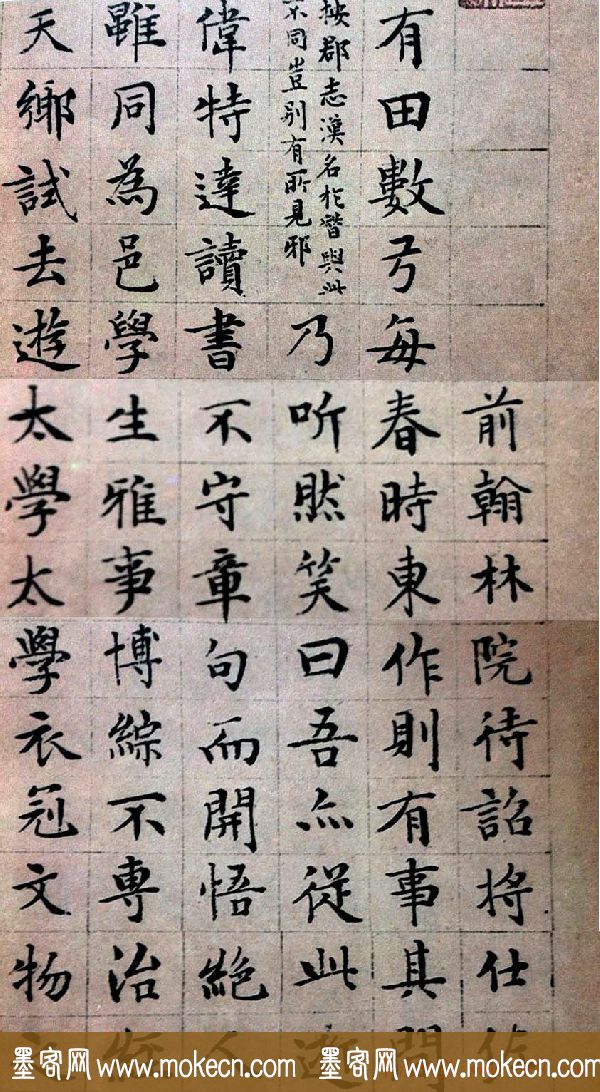 前翰林院待詔將仕
有田數弓每春時東作則有事其間
按郡志漢名與此
不同豈别有所見邪
乃听然笑曰吾亦從此
偉特達讀書不守章句而開悟絶
雖同為邑學生雅事博綜不專治
天鄉試去遊太學太學衣冠文物
墨客网 www.mokecn.com 墨客网 www.mokecn.com